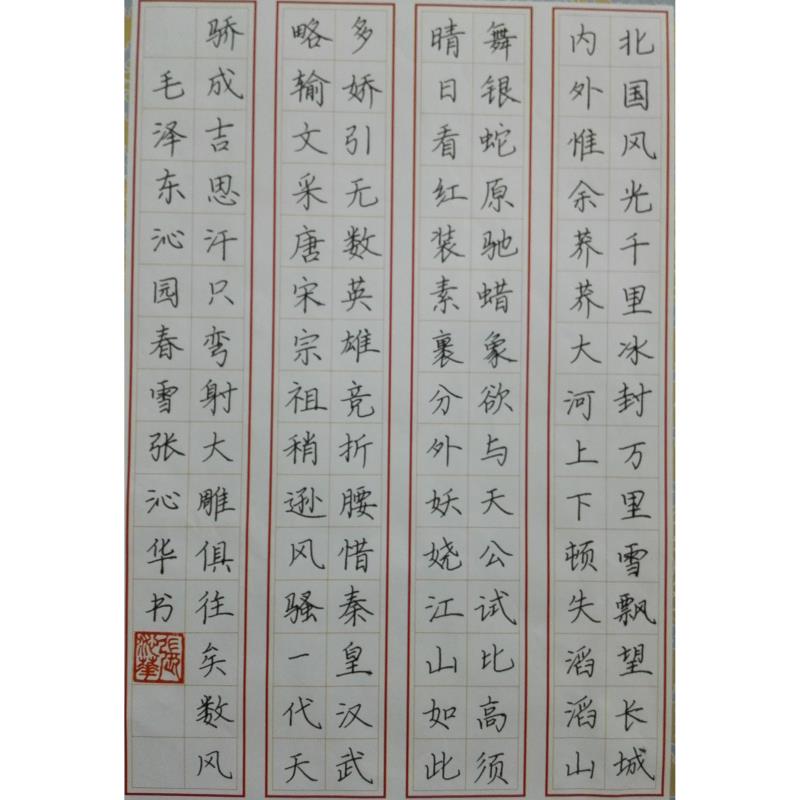 北国风光千里冰封万里雪飘望长城
内外惟余莽莽大河上下顿失滔滔山
舞银蛇原驰蜡象欲与天公试比高须
晴日看红装素裹分外妖娆江山如此
多娇引无数英雄竞折腰惜秦皇汉武
略输文采唐宋宗祖稍逊风骚一代天
骄成吉思汗只弯射大雕俱往矣数风
毛泽东沁园春雪张沁华书
張沁華